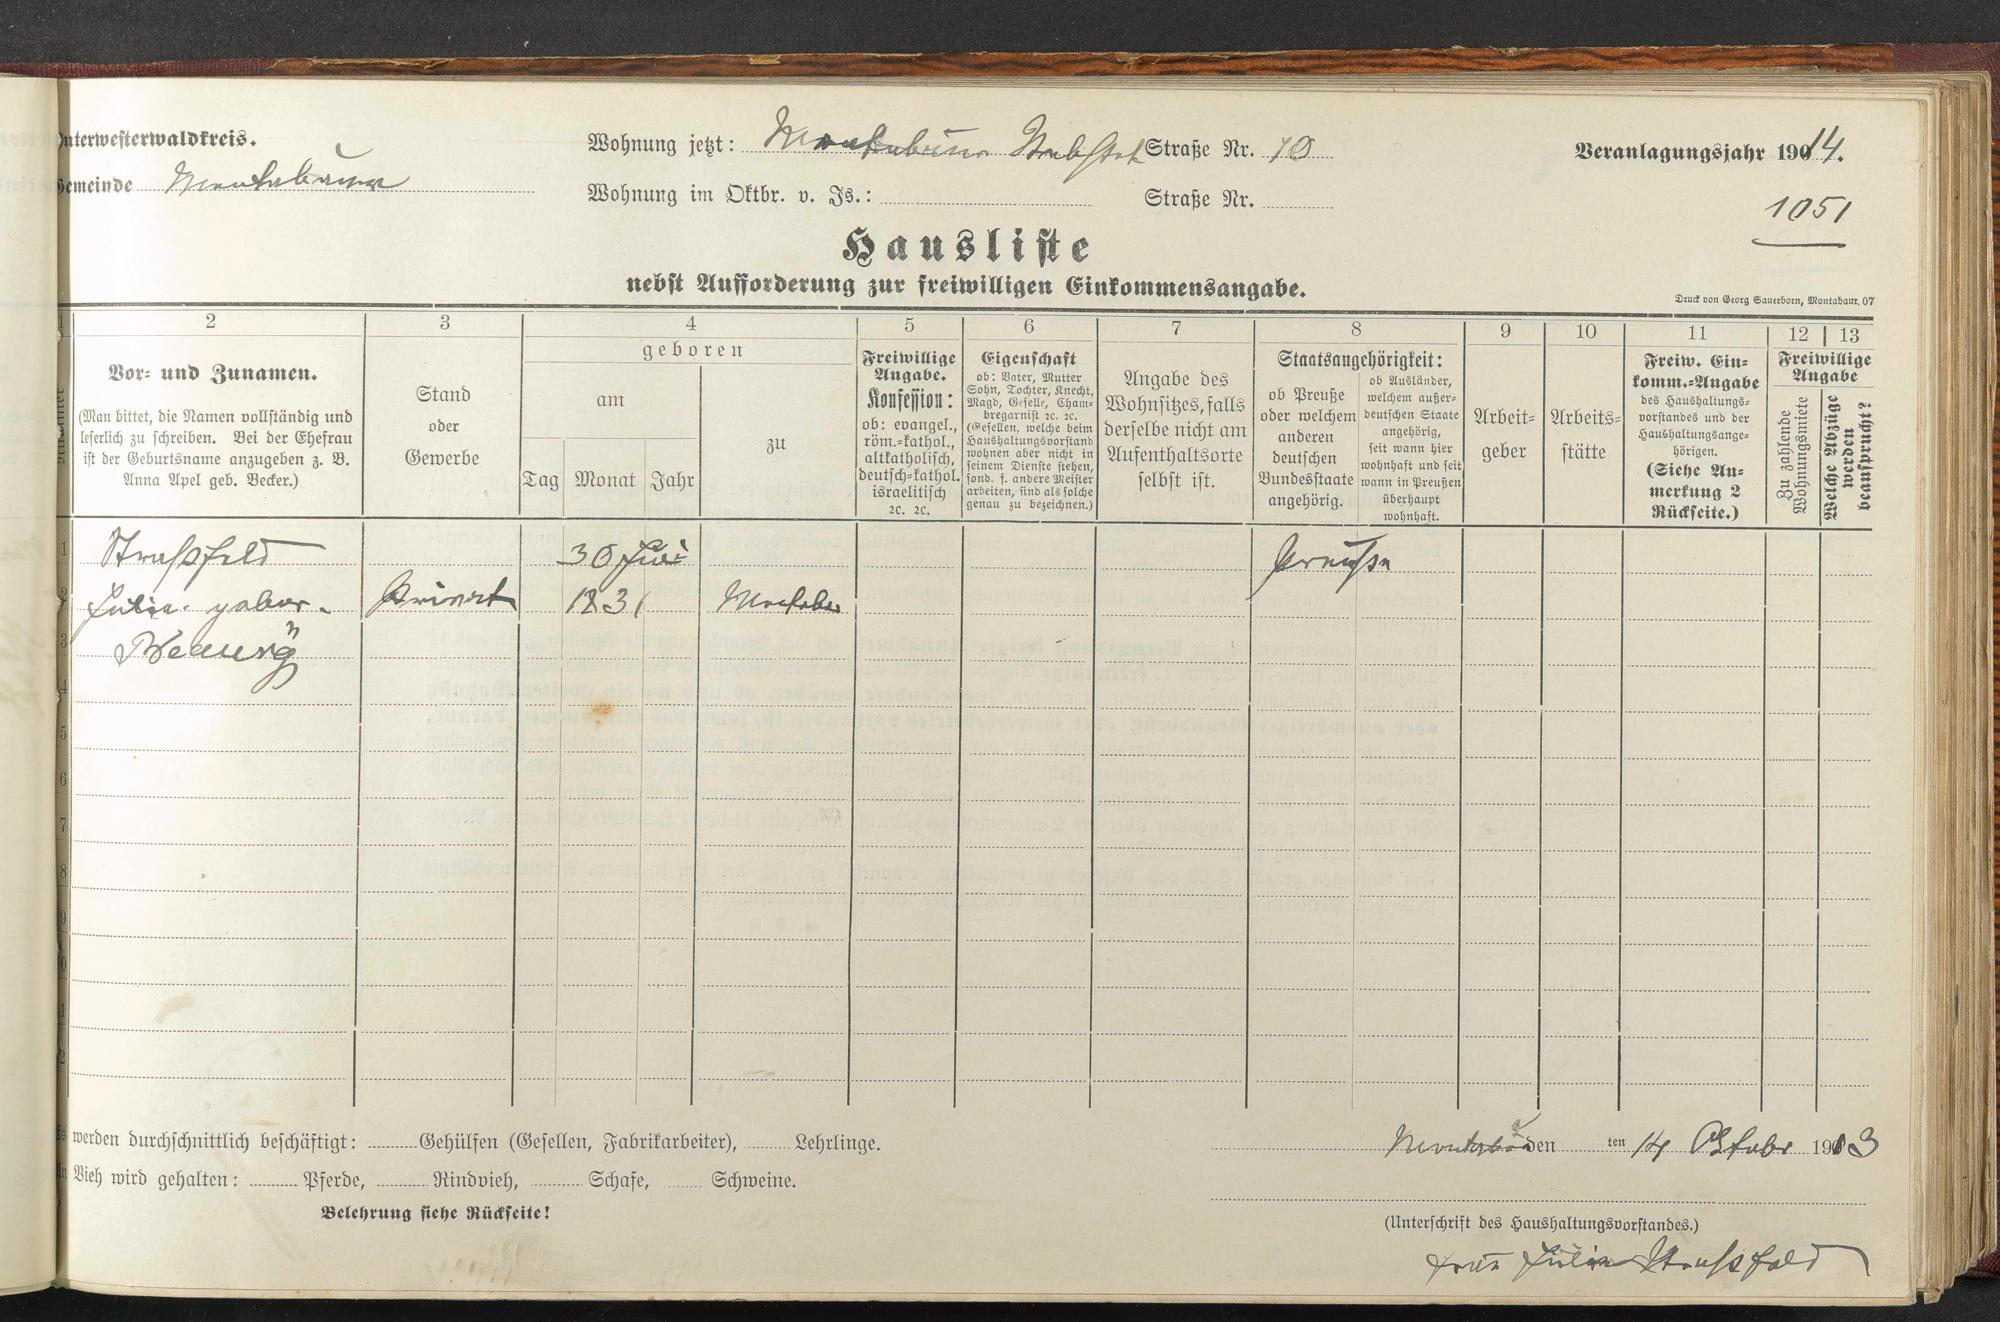 Unterwesterwaldkreis.
Gemeinde Montabaur
Wohnung jetzt: Montabaur Straße Nr. 10
Wohnung im Oktbr. v. Js.: Straße Nr.
Veranlagungsjahr 1914.
1051
Hausliste
nebst Aufforderung zur freiwilligen Einkommensangabe.
Druck von Georg Sauerborn, Montabaur. 07
1 2 3 4 5 6 7 8 9 10 11 12 13
Vor- und Zunamen.
(Man bittet, die Namen vollständig und
leserlich zu schreiben. Bei der Ehefrau
ist der Geburtsname anzugeben z. B.
Anna Apel geb. Becker.)
Stand
oder
Gewerbe
geboren
am
Tag Monat Jahr
zu
Freiwillige
Angabe.
Konfession:
ob: evangel.,
röm.-kathol.,
altkatholisch,
deutsch-kathol.
israelitisch
ꝛc. ꝛc.
Eigenschaft
ob: Vater, Mutter
Sohn, Tochter, Knecht,
Magd, Geselle, Cham-
bregarnist ꝛc. ꝛc.
(Gesellen, welche beim
Haushaltungsvorstand
wohnen aber nicht in
seinem Dienste stehen,
sond. f. andere Meister
arbeiten, sind als solche
genau zu bezeichnen.)
Angabe des
Wohnsitzes, falls
derselbe nicht am
Aufenthaltsorte
selbst ist.
Staatsangehörigkeit:
ob Preuße
oder welchem
anderen
deutschen
Bundesstaate
angehörig.
ob Ausländer,
welchem außer-
deutschen Staate
angehörig,
seit wann hier
wohnhaft und seit
wann in Preußen
überhaupt
wohnhaft.
Arbeit-
geber
Arbeits-
stätte
Freiw. Ein-
komm.-Angabe
des Haushaltungs-
vorstandes und der
Haushaltungsange-
hörigen.
(Siehe An-
merkung 2
Rückseite.)
Freiwillige
Angabe
Zu zahlende
Wohnungsmiete
Welche Abzüge
werden
beansprucht?
1 Straßfeld 30 Juli Preußen
2 Julie gebor. Privat 1831 Montabaur
3
4
5
6
7
8
9
10
11
12
Es werden durchschnittlich beschäftigt: Gehülfen (Gesellen, Fabrikarbeiter), Lehrlinge.
An Vieh wird gehalten: Pferde, Rindvieh, Schafe, Schweine.
Belehrung siehe Rückseite!
Montabaur den ten 14 Oktober 1913
(Unterschrift des Haushaltungsvorstandes.)
Frau Julie Straßfeld